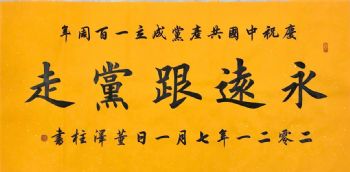 慶祝中國共產黨成立一百周年
永遠跟黨走
二零二一年七月一日董澤柱書